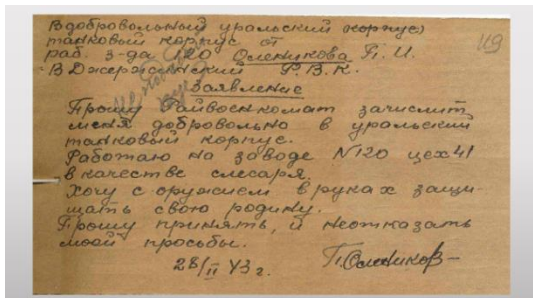 В добровольный уральский корпус
танковый корпус от
раб. з-да 120 Оленикова П. И.
В Джержинский Р.В.К.
119
Заявление
Прошу Райвоенкомат зачислить
меня добровольно в уральский
танковый корпус.
Работаю на заводе N120 цех 41
в качестве слесаря.
Хочу с оружием в руках защи-
щать свою родину.
Прошу принять, и неотказать
моей просьбы.
28/II 43 г.
П.Олеников